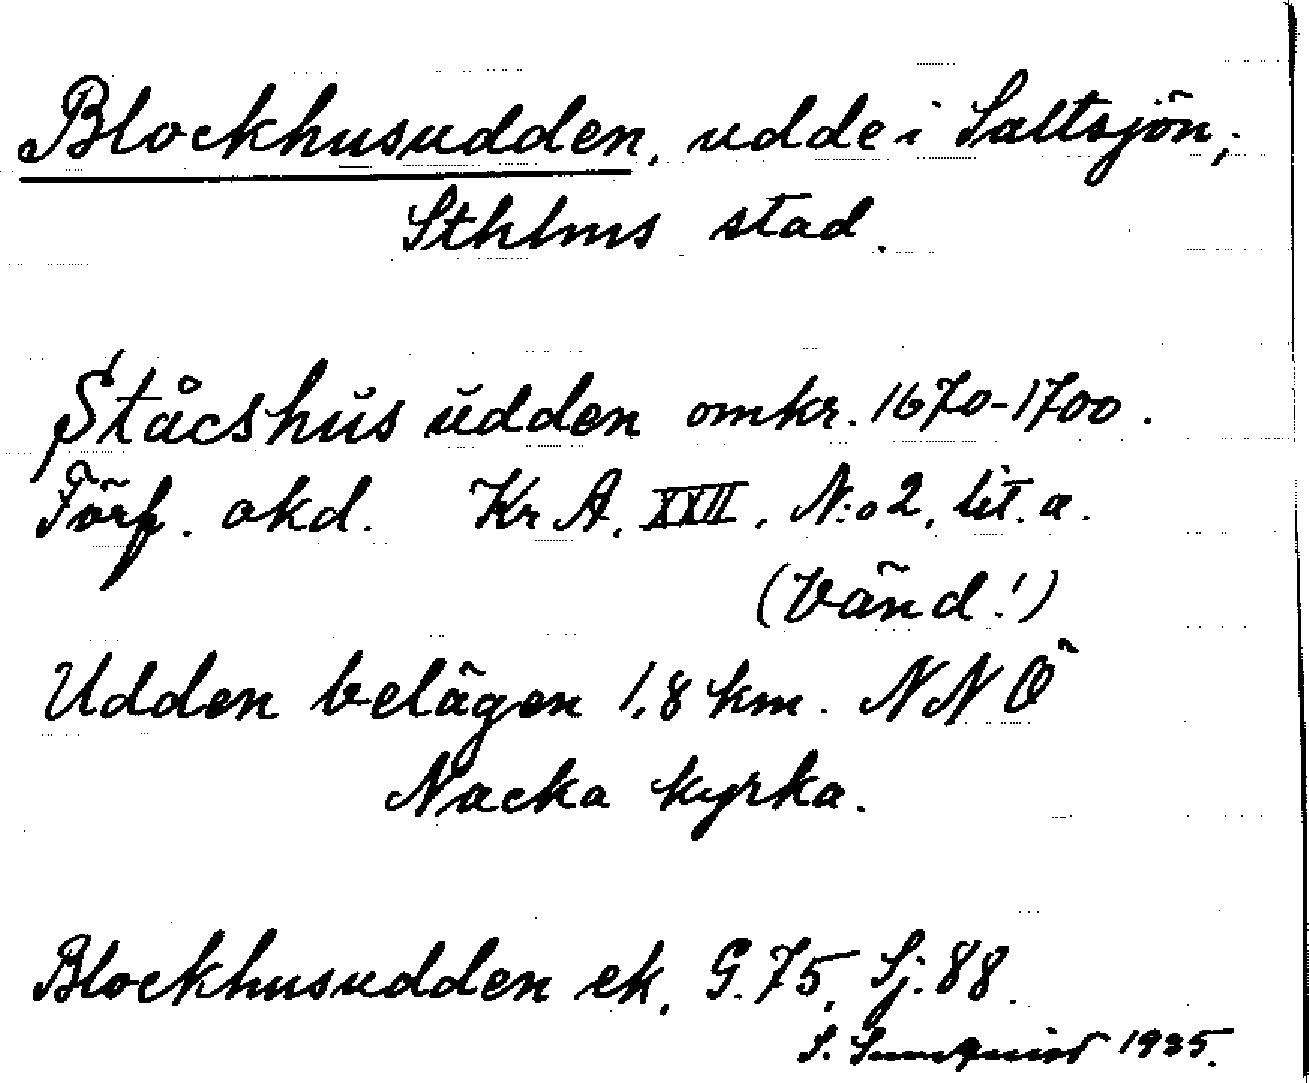 Blockhusudden, udde i Saltsjön,
Sthlms stad.
Ståcshus udden omkr. 1670-1700.
Förf. okd. Kr A. XXII. N:o 2. lit. a.
(Vänd!)
Udden belägen 1,8 km. NNÖ
Nacka kyrka.
Blockhusudden ek. G. 75, Sj. 88.
S. 1935.